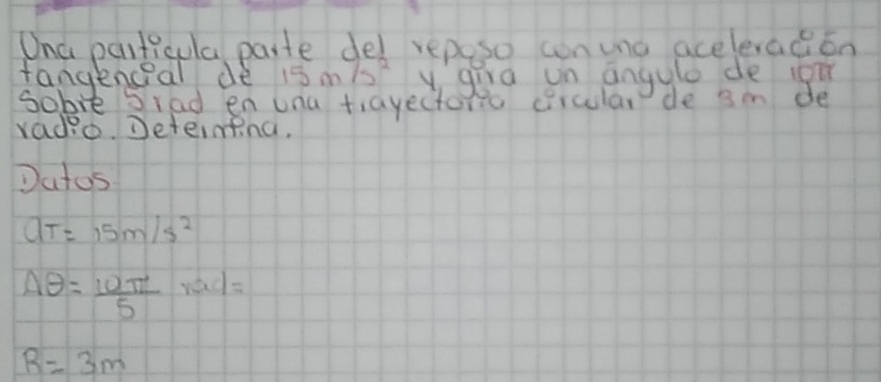 Una particula parte del reposo con una aceleración
tangencial de 15 m/s² y gira un ángulo de 10π
sobre 5 rad en una trayectoria circular de 3m de
radio. Determina.
Datos
aT = 15m/s²
Δθ = 10π/5 rad =
R = 3m